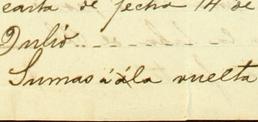 carta de fecha 14 de
Julio
Sumas á á la vuelta